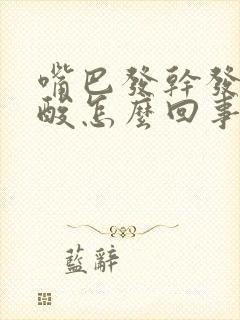 嘴巴發幹發
酸怎麼回事
藍辭